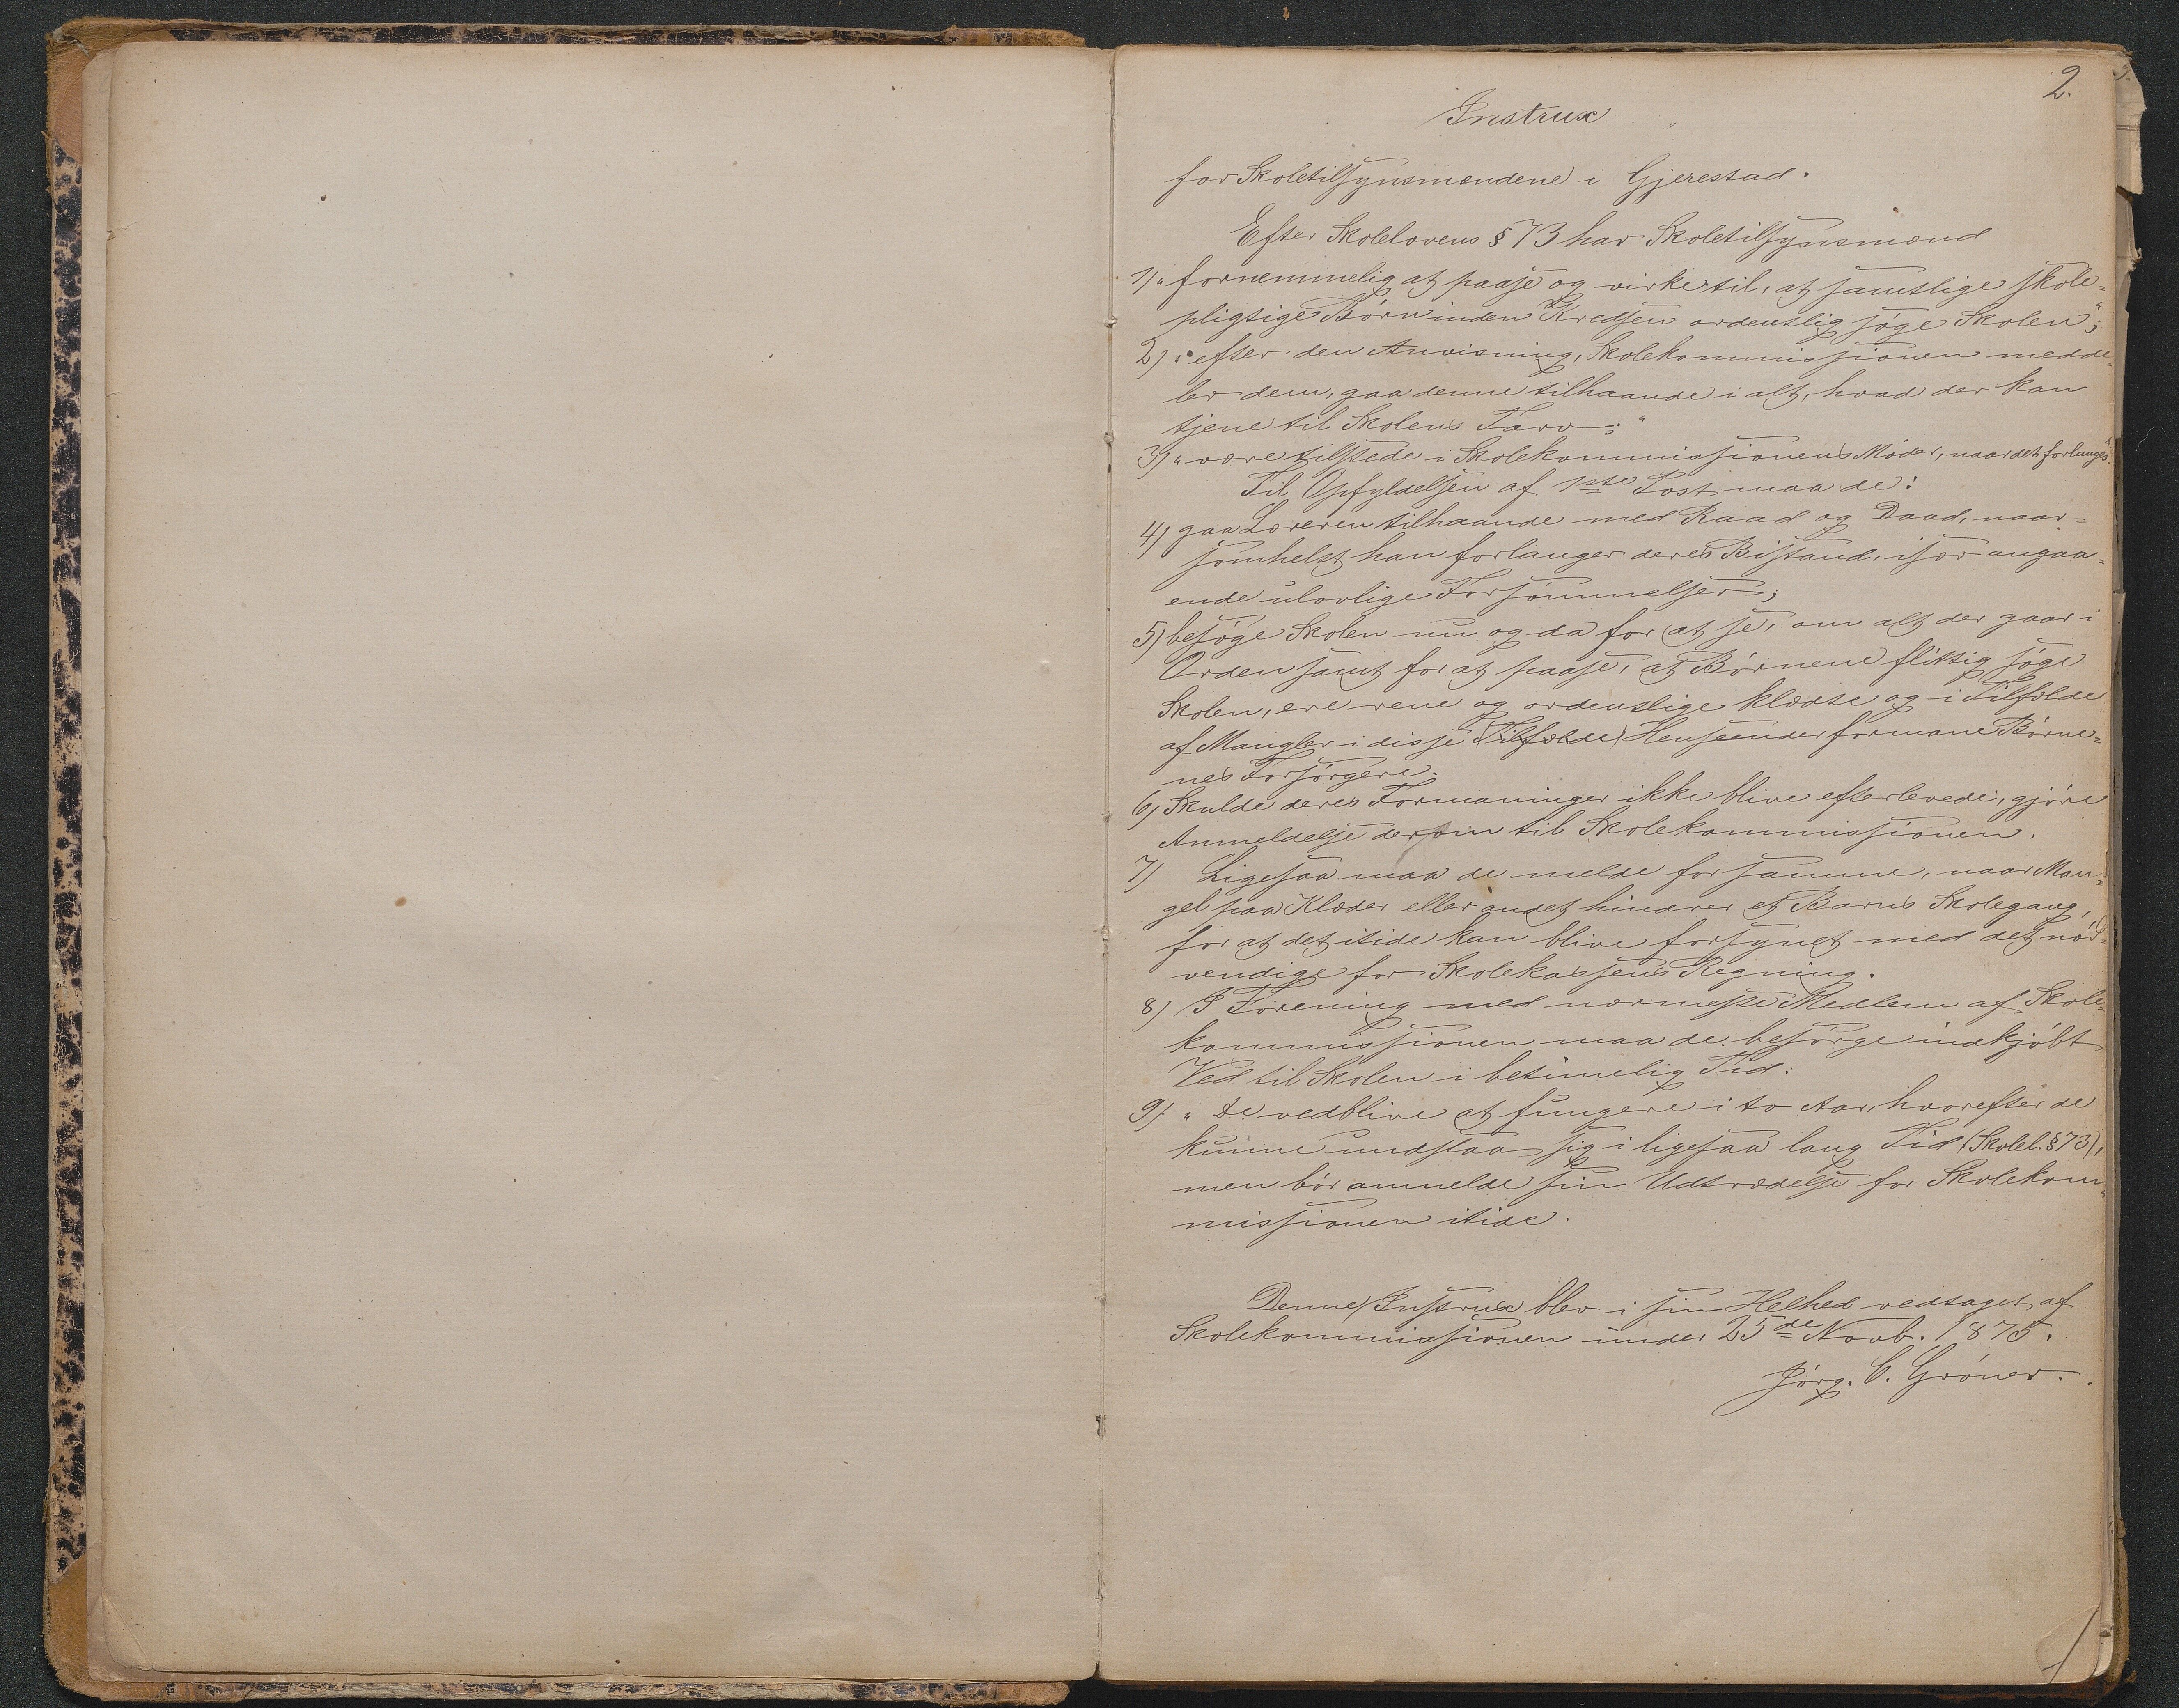 2.
Instrux
for Skoletilsynsmændene i Gjerestad.
Efter Skolelovens § 73 har Skoletilsynsmænd
1) "fornemmelig at paase og virke til, at samtlige skole=
pligtige Børn inden Kredsen ordentlig søge Skolen";
2) "efter den Anvisning, Skolekommissionen medde=
ler dem, gaa denne tilhaande i alt, hvad der kan
tjene til Skolens Tarv;"
3) "være tilstede i Skolekommissionens Møder, naar det forlanges".
Til Opfyldelsen af 1ste Post maa de:
4) gaa Læreren tilhaande med Raad og Daad, naar=
somhelst han forlanger deres Bistand, især angaa=
ende ulovlige Forsømmelser;
5) besøge Skolen nu og da for at se, om alt der gaar i
Orden samt for at paase, at Børnene flittig søge
Skolen, ere rene og ordentlige klædte og i Tilfælde
af Mangler i disse (Tilfælde) Henseender formane Børne=
nes Forsørgere.
6) Skulde deres Formaninger ikke blive efterlevede, gjøre
Anmeldelse derom til Skolekommissionen.
7) Ligesaa maa de melde for samme, naar Man=
gel paa Klæder eller andet hindrer et Barns Skolegang,
for at det itide kan blive forsynet med det nød=
vendige for Skolekassens Regning.
8) I Forening med nærmeste Medlem af Skole=
kommissionen maa de besørge indkjøbt
Ved til Skolen i betimelig Tid.
9) " De vedblive at fungere i to Aar, hvorefter de
kunne undslaa sig i ligesaa lang Tid (Skolel. § 73),
men bør anmelde sin Udtrædelse for Skolekom=
missionen itide.
Denne Instrux blev i sin Helhed vedtaget af
Skolekommissionen under 25de Novb. 1875.
Jørg. C. Grøner.